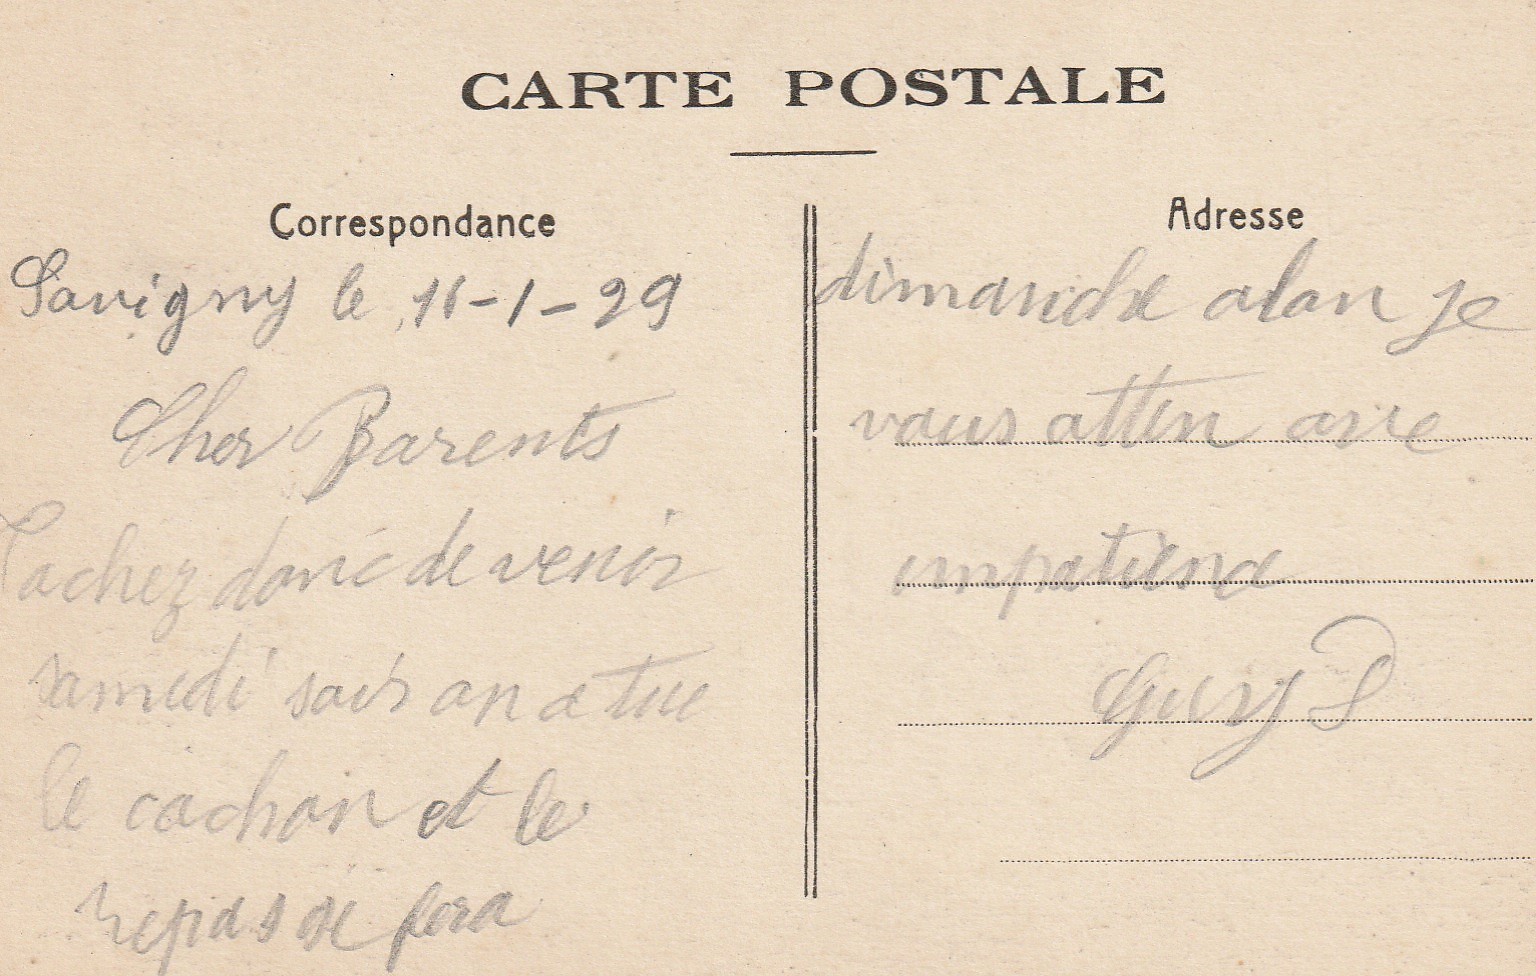 CARTE POSTALE
Correspondance
Savigny le 16-1-29
Cher Parents
Tachez donc de venir
samedi soir on a tue
le cochon et le
repas se fera
Adresse
dimanche alon je
vous atten avec
impatience